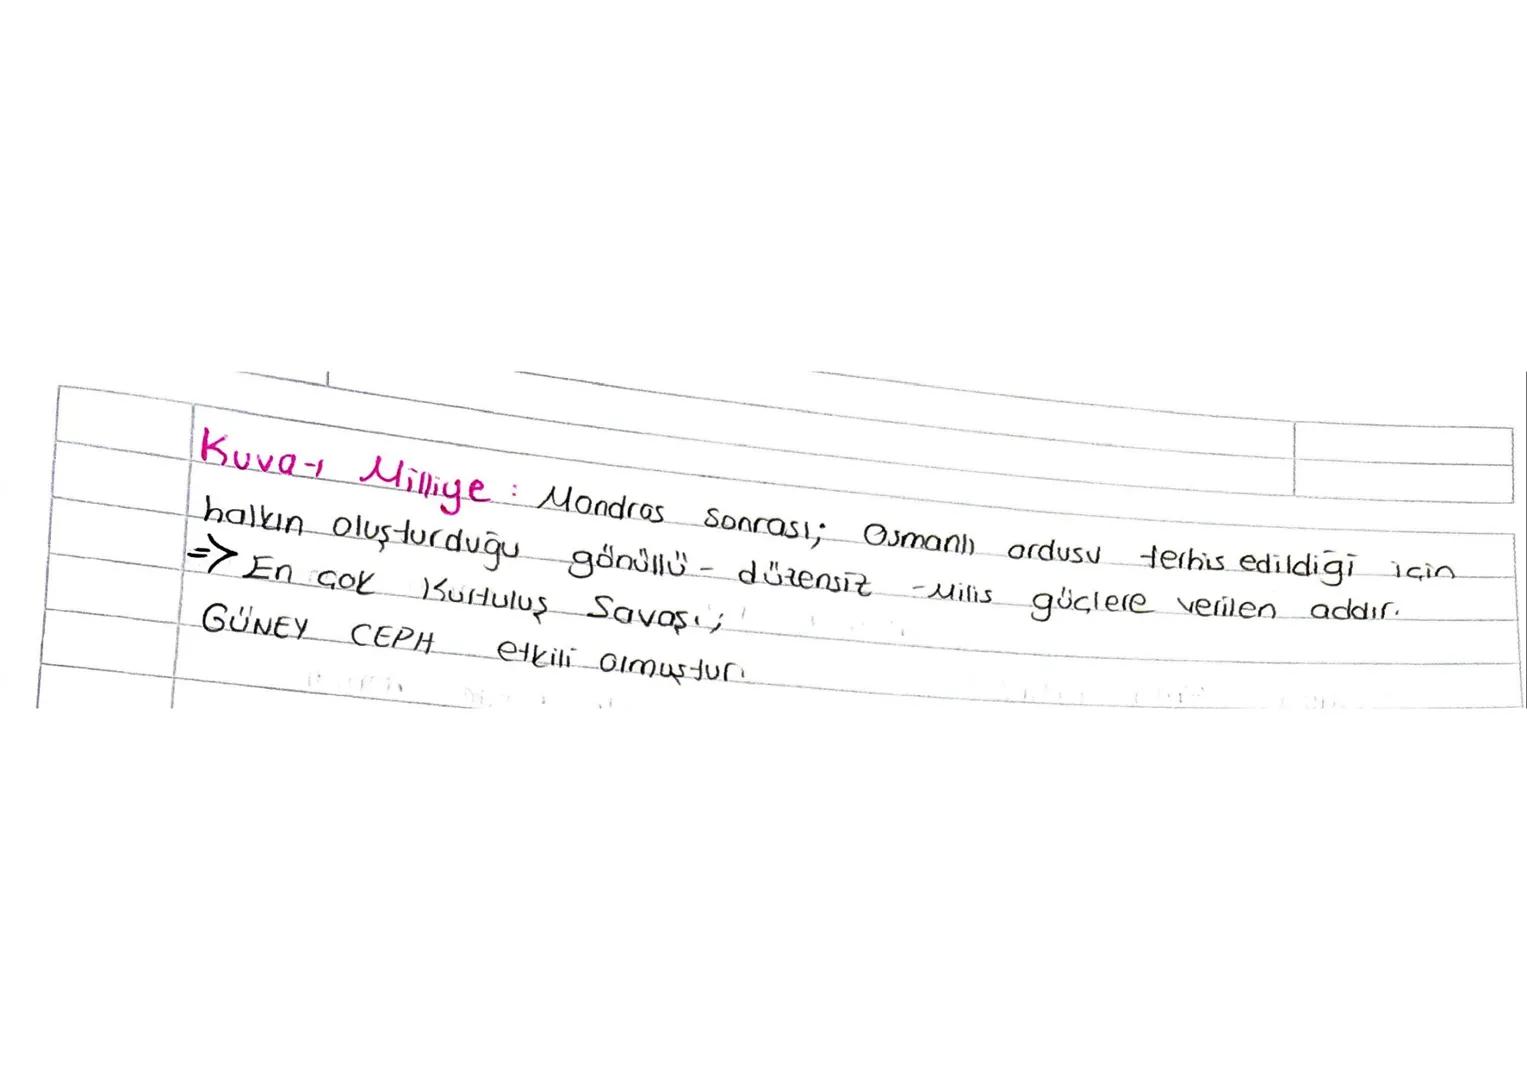 Kuva-ı Milliye : Mondros sonrası; Osmanlı ordusu terhis edildiği için
halkın oluşturduğu gönüllü - düzensiz - Milis güçlere verilen addır.
=> En çok Kurtuluş Savaşı;
GÜNEY CEPH etkili olmuştur.